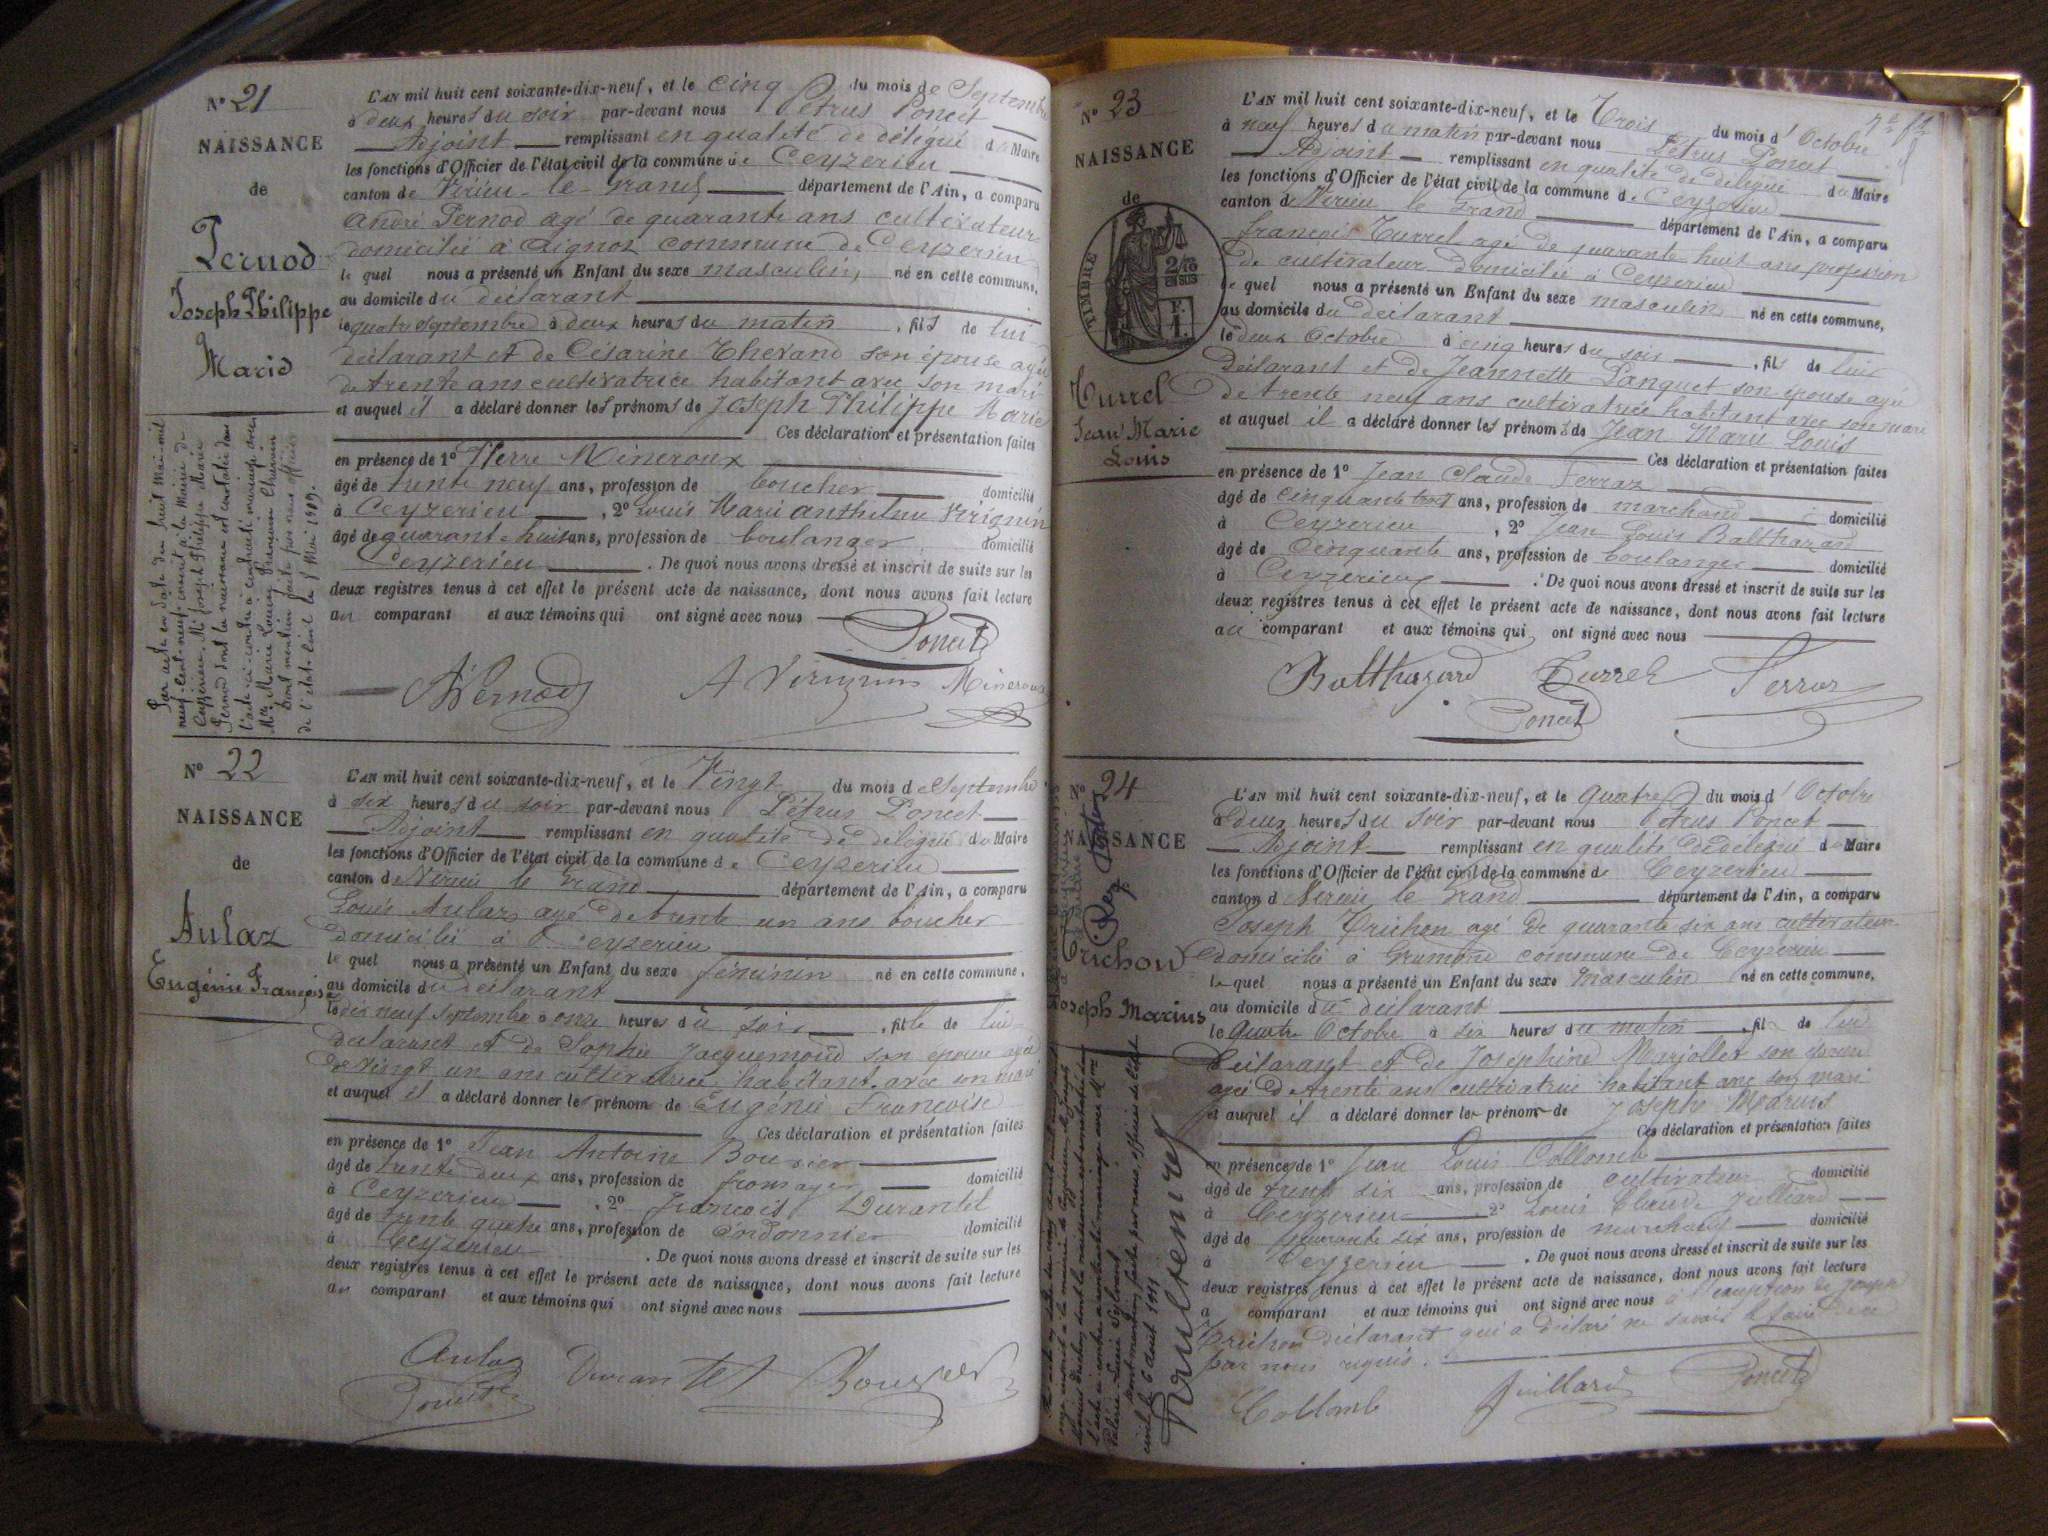 N° 21
NAISSANCE
de
Pernod
Joseph Philippe
Marie
L'AN mil huit cent soixante-dix-neuf, et le cinq du mois de Septembre
à deux heures du soir par-devant nous Pétrus Poncet
Adjoint remplissant en qualité de délégué du Maire
les fonctions d'Officier de l'état civil de la commune de Ceyzerieu
canton de Virieu-le-Grand département de l'Ain, a comparu
André Pernod agé de quarante ans cultivateur
domicilié à Aignoz commune de Ceyzerieu
le quel nous a présenté un Enfant du sexe masculin, né en cette commune,
au domicile du déclarant
le quatre Septembre à deux heures du matin, fils de lui
déclarant et de Césarine Thevand son épouse agée
de trente ans cultivatrice habitant avec son mari
et auquel il a déclaré donner les prénoms de Joseph Philippe Marie
Ces déclaration et présentation faites
en présence de 1° Pierre Mineroux
âgé de trente neuf ans, profession de boucher domicilié
à Ceyzerieu, 2° Louis Marie Anthelme Virignin
âgé de quarante huit ans, profession de boulanger domicilié
Ceyzerieu. De quoi nous avons dressé et inscrit de suite sur les
deux registres tenus à cet effet le présent acte de naissance, dont nous avons fait lecture
au comparant et aux témoins qui ont signé avec nous
Poncet
A Pernod A Virignin Mineroux
Par acte en date du huit Mai mil
neuf cent neuf inscrit à la Mairie de
Ceyzérieu, Mr Joseph Philippe Marie
Pernod dont la naissance est constatée dans
l'acte ci-contre a contracté mariage avec
Mlle Marie Louise Françoise Chervin
Dont mention faite par nous officier
de l'état-civil le 8 Mai 1909.
N° 22
NAISSANCE
de
Aulaz
Eugénie Françoise
L'AN mil huit cent soixante-dix-neuf, et le Vingt du mois de Septembre
à six heures du soir par-devant nous Pétrus Poncet
Adjoint remplissant en qualité de délégué du Maire
les fonctions d'Officier de l'état civil de la commune de Ceyzerieu
canton de Virieu le Grand département de l'Ain, a comparu
Louis Aulaz agé de trente un ans boucher
domicilié à Ceyzerieu
le quel nous a présenté un Enfant du sexe féminin né en cette commune,
au domicile du déclarant
le dix neuf Septembre à onze heures du soir, fille de lui
déclarant et de Sophie Jacquemoud son épouse agée
de vingt un ans cultivatrice habitant avec son mari
et auquel il a déclaré donner le prénom de Eugénie Françoise
Ces déclaration et présentation faites
en présence de 1° Jean Antoine Bouvier
âgé de trente deux ans, profession de fromager domicilié
à Ceyzerieu, 2° François Durantet
âgé de trente quatre ans, profession de Cordonnier domicilié
à Ceyzerieu. De quoi nous avons dressé et inscrit de suite sur les
deux registres tenus à cet effet le présent acte de naissance, dont nous avons fait lecture
au comparant et aux témoins qui ont signé avec nous
Aulaz Durantet Bouvier
Poncet
N° 23
NAISSANCE
de
TIMBRE
Turrel
Jean Marie
Louis
L'AN mil huit cent soixante-dix-neuf, et le Trois du mois d'Octobre
à neuf heures du matin par-devant nous Pétrus Poncet
Adjoint remplissant en qualité de délégué du Maire
les fonctions d'Officier de l'état civil de la commune de Ceyzerieu
canton de Virieu le Grand département de l'Ain, a comparu
François Turrel agé de quarante huit ans profession
de cultivateur domicilié à Ceyzerieu
le quel nous a présenté un Enfant du sexe masculin né en cette commune,
au domicile du déclarant
le deux Octobre à cinq heures du soir, fils de lui
déclarant et de Jeannette Panquet son épouse agée
de trente neuf ans cultivatrice habitant avec son mari
et auquel il a déclaré donner les prénoms de Jean Marie Louis
Ces déclaration et présentation faites
en présence de 1° Jean Claude Ferraz
âgé de cinquante trois ans, profession de marchand domicilié
à Ceyzerieu, 2° Jean Louis Balthazard
âgé de Cinquante ans, profession de boulanger domicilié
à Ceyzerieu. De quoi nous avons dressé et inscrit de suite sur les
deux registres tenus à cet effet le présent acte de naissance, dont nous avons fait lecture
au comparant et aux témoins qui ont signé avec nous
Balthazard Turrel Ferraz
Poncet
N° 24
NAISSANCE
Trichon
Joseph Marius
L'AN mil huit cent soixante-dix-neuf, et le quatre du mois d'Octobre
à deux heures du soir par-devant nous Pétrus Poncet
Adjoint remplissant en qualité de délégué du Maire
les fonctions d'Officier de l'état civil de la commune de Ceyzerieu
canton de Virieu le Grand département de l'Ain, a comparu
Joseph Trichon agé de quarante six ans cultivateur
domicilié à commune de Ceyzerieu
le quel nous a présenté un Enfant du sexe masculin né en cette commune,
au domicile du déclarant
le quatre Octobre à six heures du matin, fil de lui
déclarant et de Joséphine Marjollet son épouse
agée de trente ans cultivatrice habitant avec son mari
et auquel il a déclaré donner le prénom de Joseph Marius
Ces déclaration et présentation faites
en présence de 1° Jean Louis Collomb
âgé de trente six ans, profession de cultivateur domicilié
à Ceyzerieu 2° Louis Claude Juillard
âgé de quarante six ans, profession de marchand domicilié
à Ceyzerieu. De quoi nous avons dressé et inscrit de suite sur les
deux registres tenus à cet effet le présent acte de naissance, dont nous avons fait lecture
à comparant et aux témoins qui ont signé avec nous à l'exception de Joseph
Trichon déclarant qui a déclaré ne savoir le faire de ce
par nous requis.
Collomb Juillard Poncet
civil le 6 avril 1911